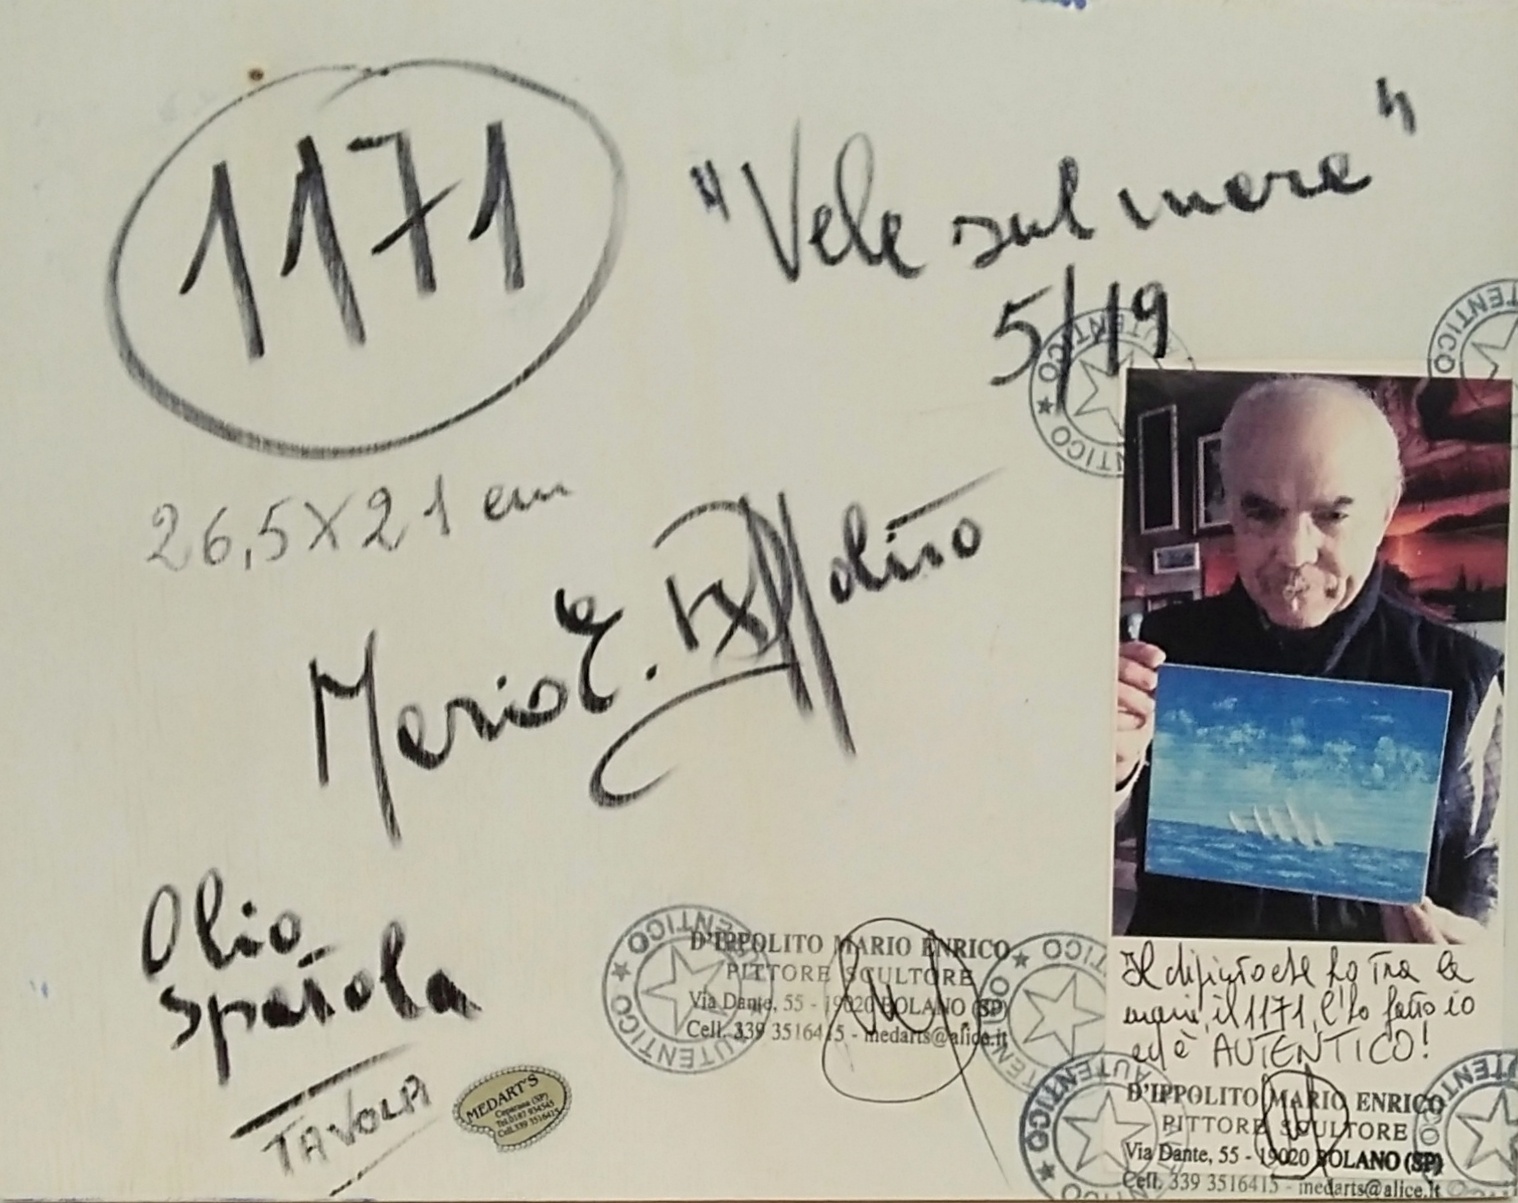 1171
"Vele sul mare"
5/19
26,5X21 cm
Mario E. D'Ippolito
Olio
spatola
TAVOLA
MEDART'S
Cell.339 3516415
AUTENTICO ★ AUTENTICO
D'IPPOLITO MARIO ENRICO
PITTORE SCULTORE
Via Dante, 55 - 19020 BOLANO (SP)
Cell. 339 3516415 - medarts@alice.it
Il dipinto che ho tra le
mani, il 1171, l'ho fatto io
ed è AUTENTICO!
D'IPPOLITO MARIO ENRICO
PITTORE SCULTORE
Via Dante, 55 - 19020 BOLANO (SP)
Cell. 339 3516415 - medarts@alice.it